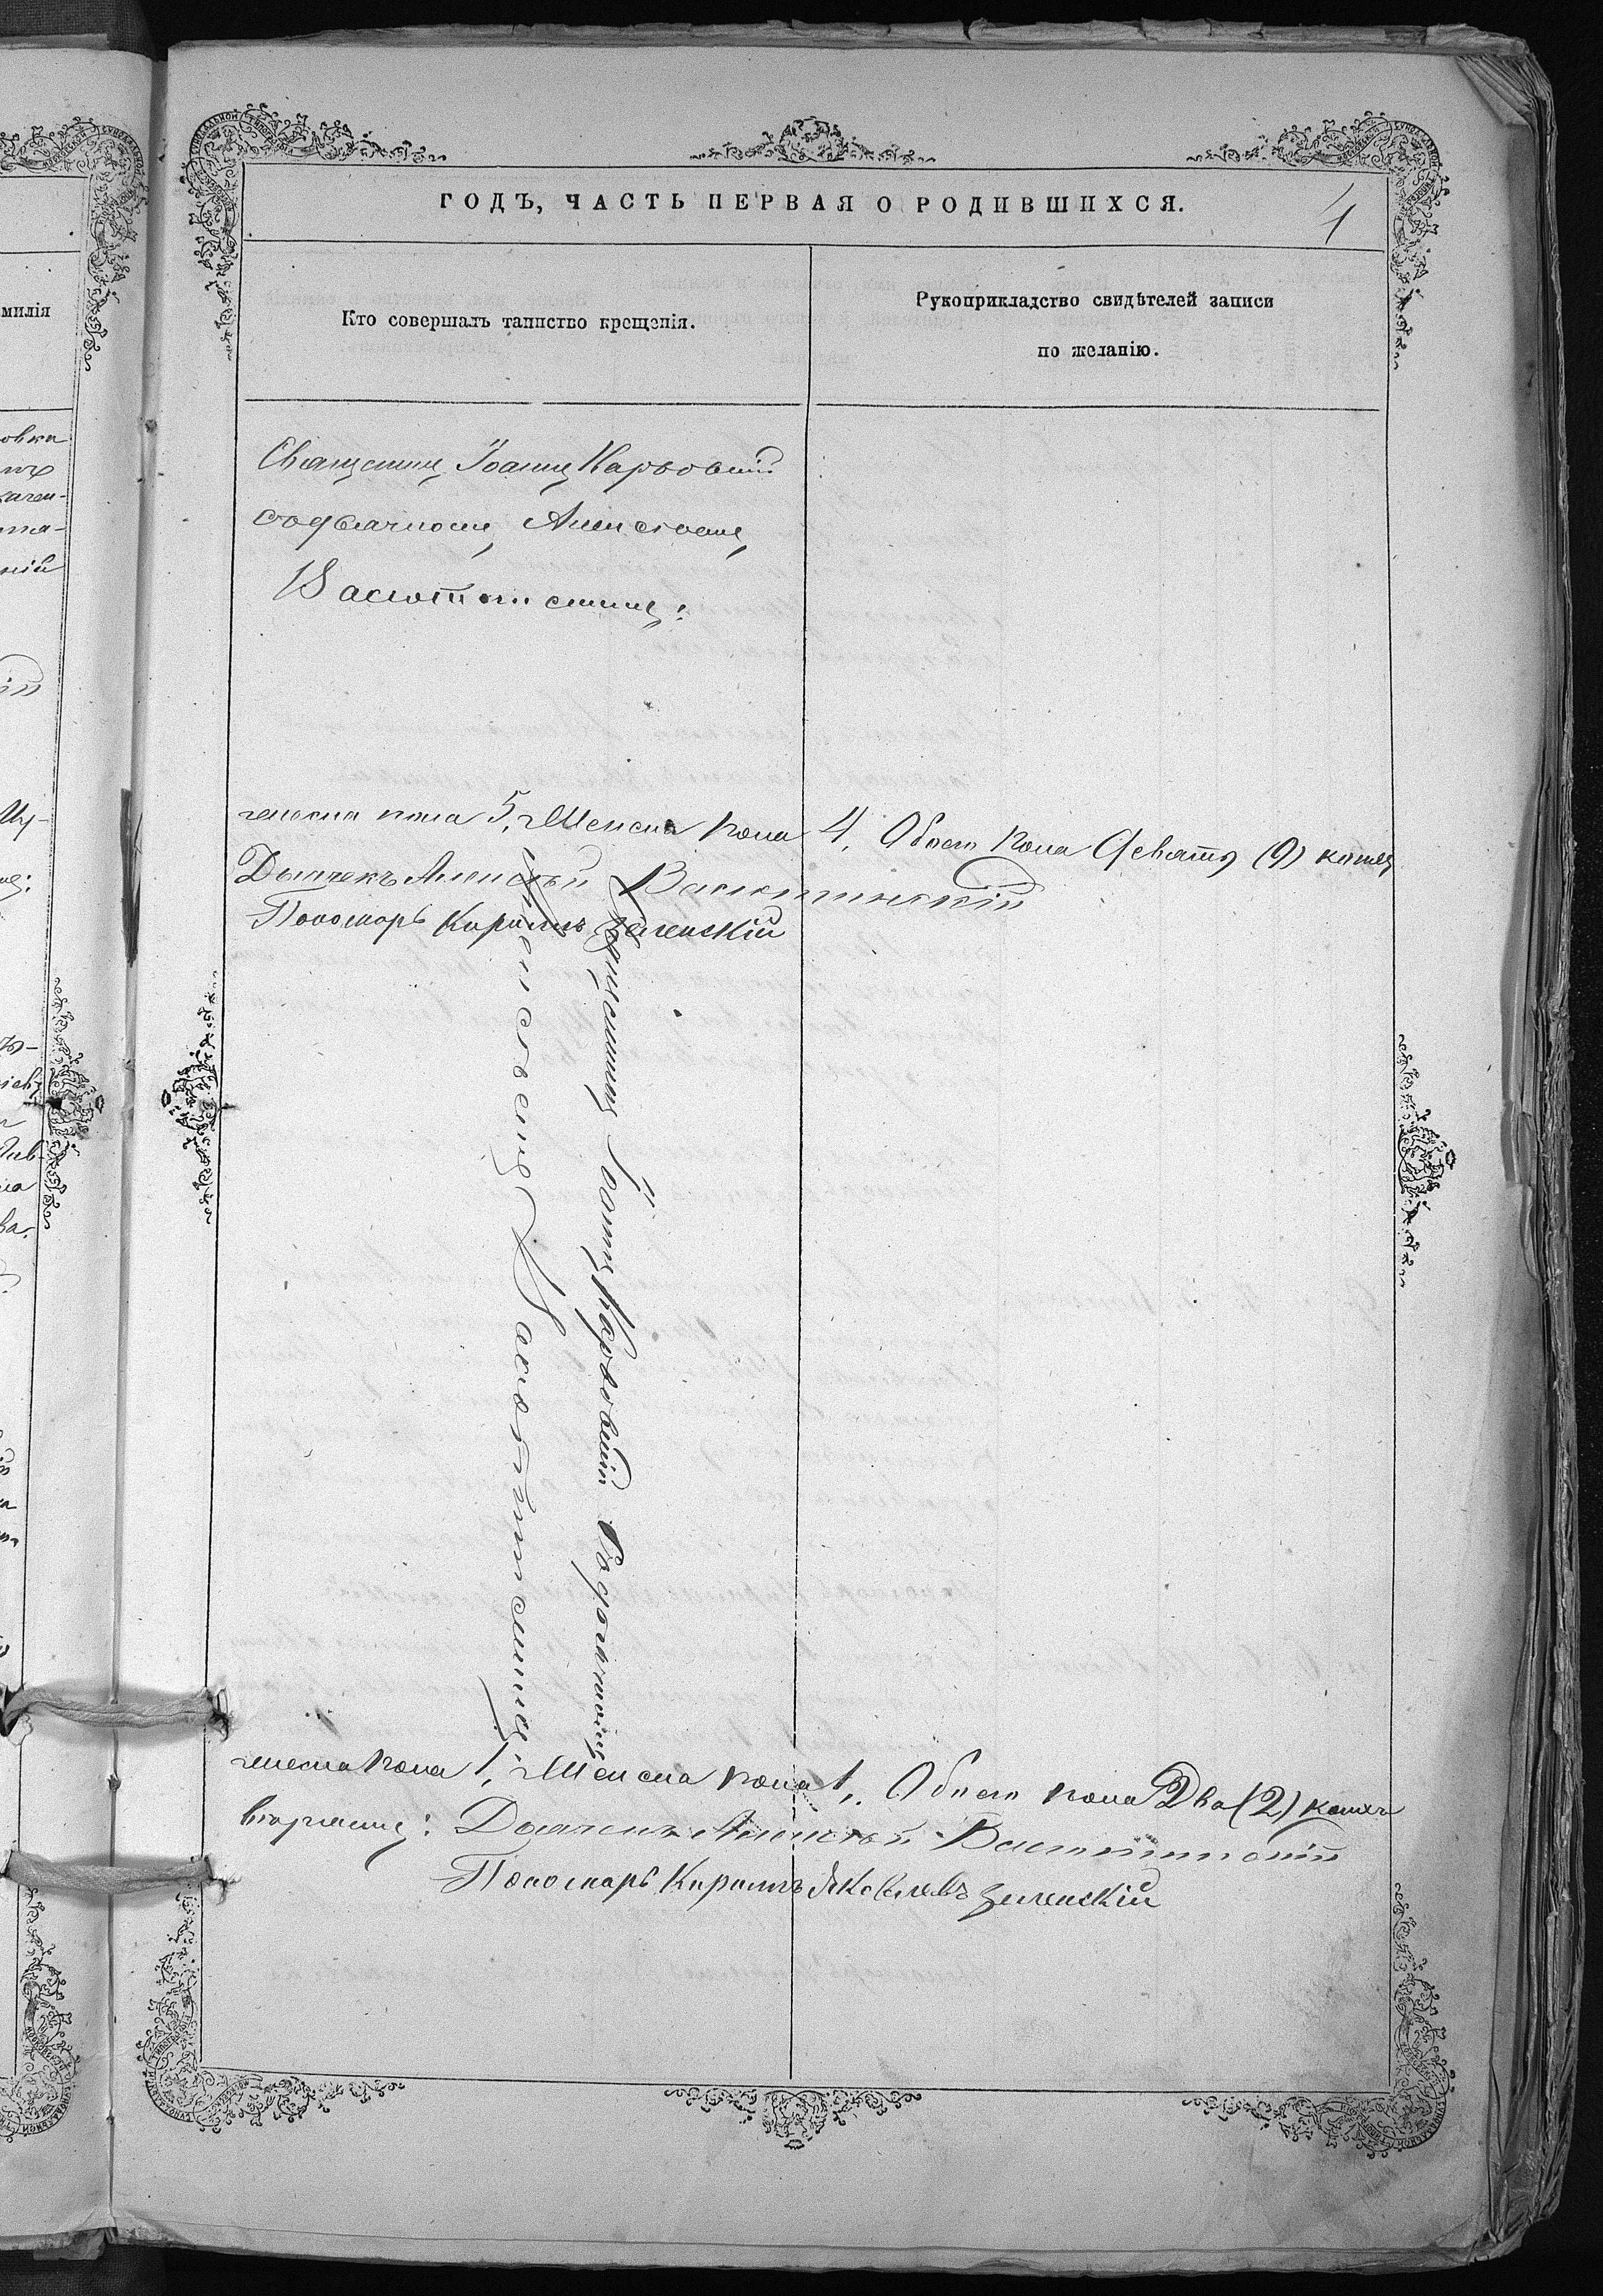 ГОДЪ, ЧАСТЬ ПЕРВАЯ О РОДИВШИХСЯ.
1
Кто совершалъ таинство крещенія.
Рукоприкладство свидѣтелей записи
по желанію.
Священникъ Іоаннъ Карповскій
съ дьячкомъ Алексѣемъ
Васютинскимъ:
пола 5, Женска пола 4, Обоего пола Девять (9)
Дьячекъ Алексѣй Васютинскій
Пономарь Кирилъ Зеленскій
Священникъ Іоаннъ Карповскій съ дьячкомъ
Алексѣемъ Васютинскимъ:
пола 1, Женска пола 1, Обоего пола Два (2)
Дьячекъ Алексѣй Васютинскій
Пономарь Кирилъ Яковлевъ Зеленскій
милія